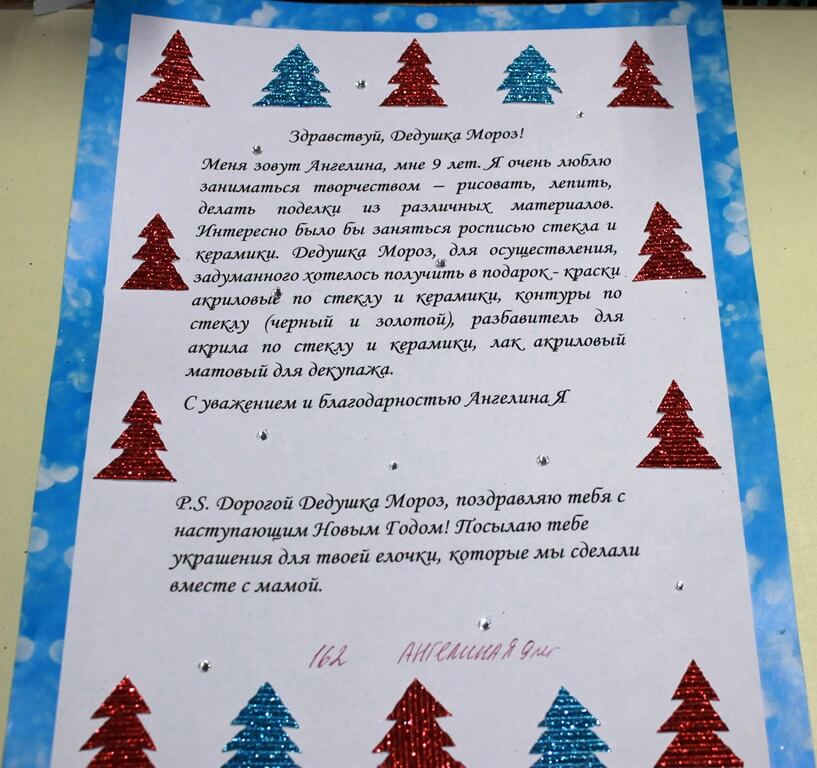 Здравствуй, Дедушка Мороз!
Меня зовут Ангелина, мне 9 лет. Я очень люблю
заниматься творчеством – рисовать, лепить,
делать поделки из различных материалов.
Интересно было бы заняться росписью стекла и
керамики. Дедушка Мороз, для осуществления,
задуманного хотелось получить в подарок - краски
акриловые по стеклу и керамики, контуры по
стеклу (черный и золотой), разбавитель для
акрила по стеклу и керамики, лак акриловый
матовый для декупажа.
С уважением и благодарностью Ангелина Я
P.S. Дорогой Дедушка Мороз, поздравляю тебя с
наступающим Новым Годом! Посылаю тебе
украшения для твоей елочки, которые мы сделали
вместе с мамой.
162 Ангелина Я 9 лет